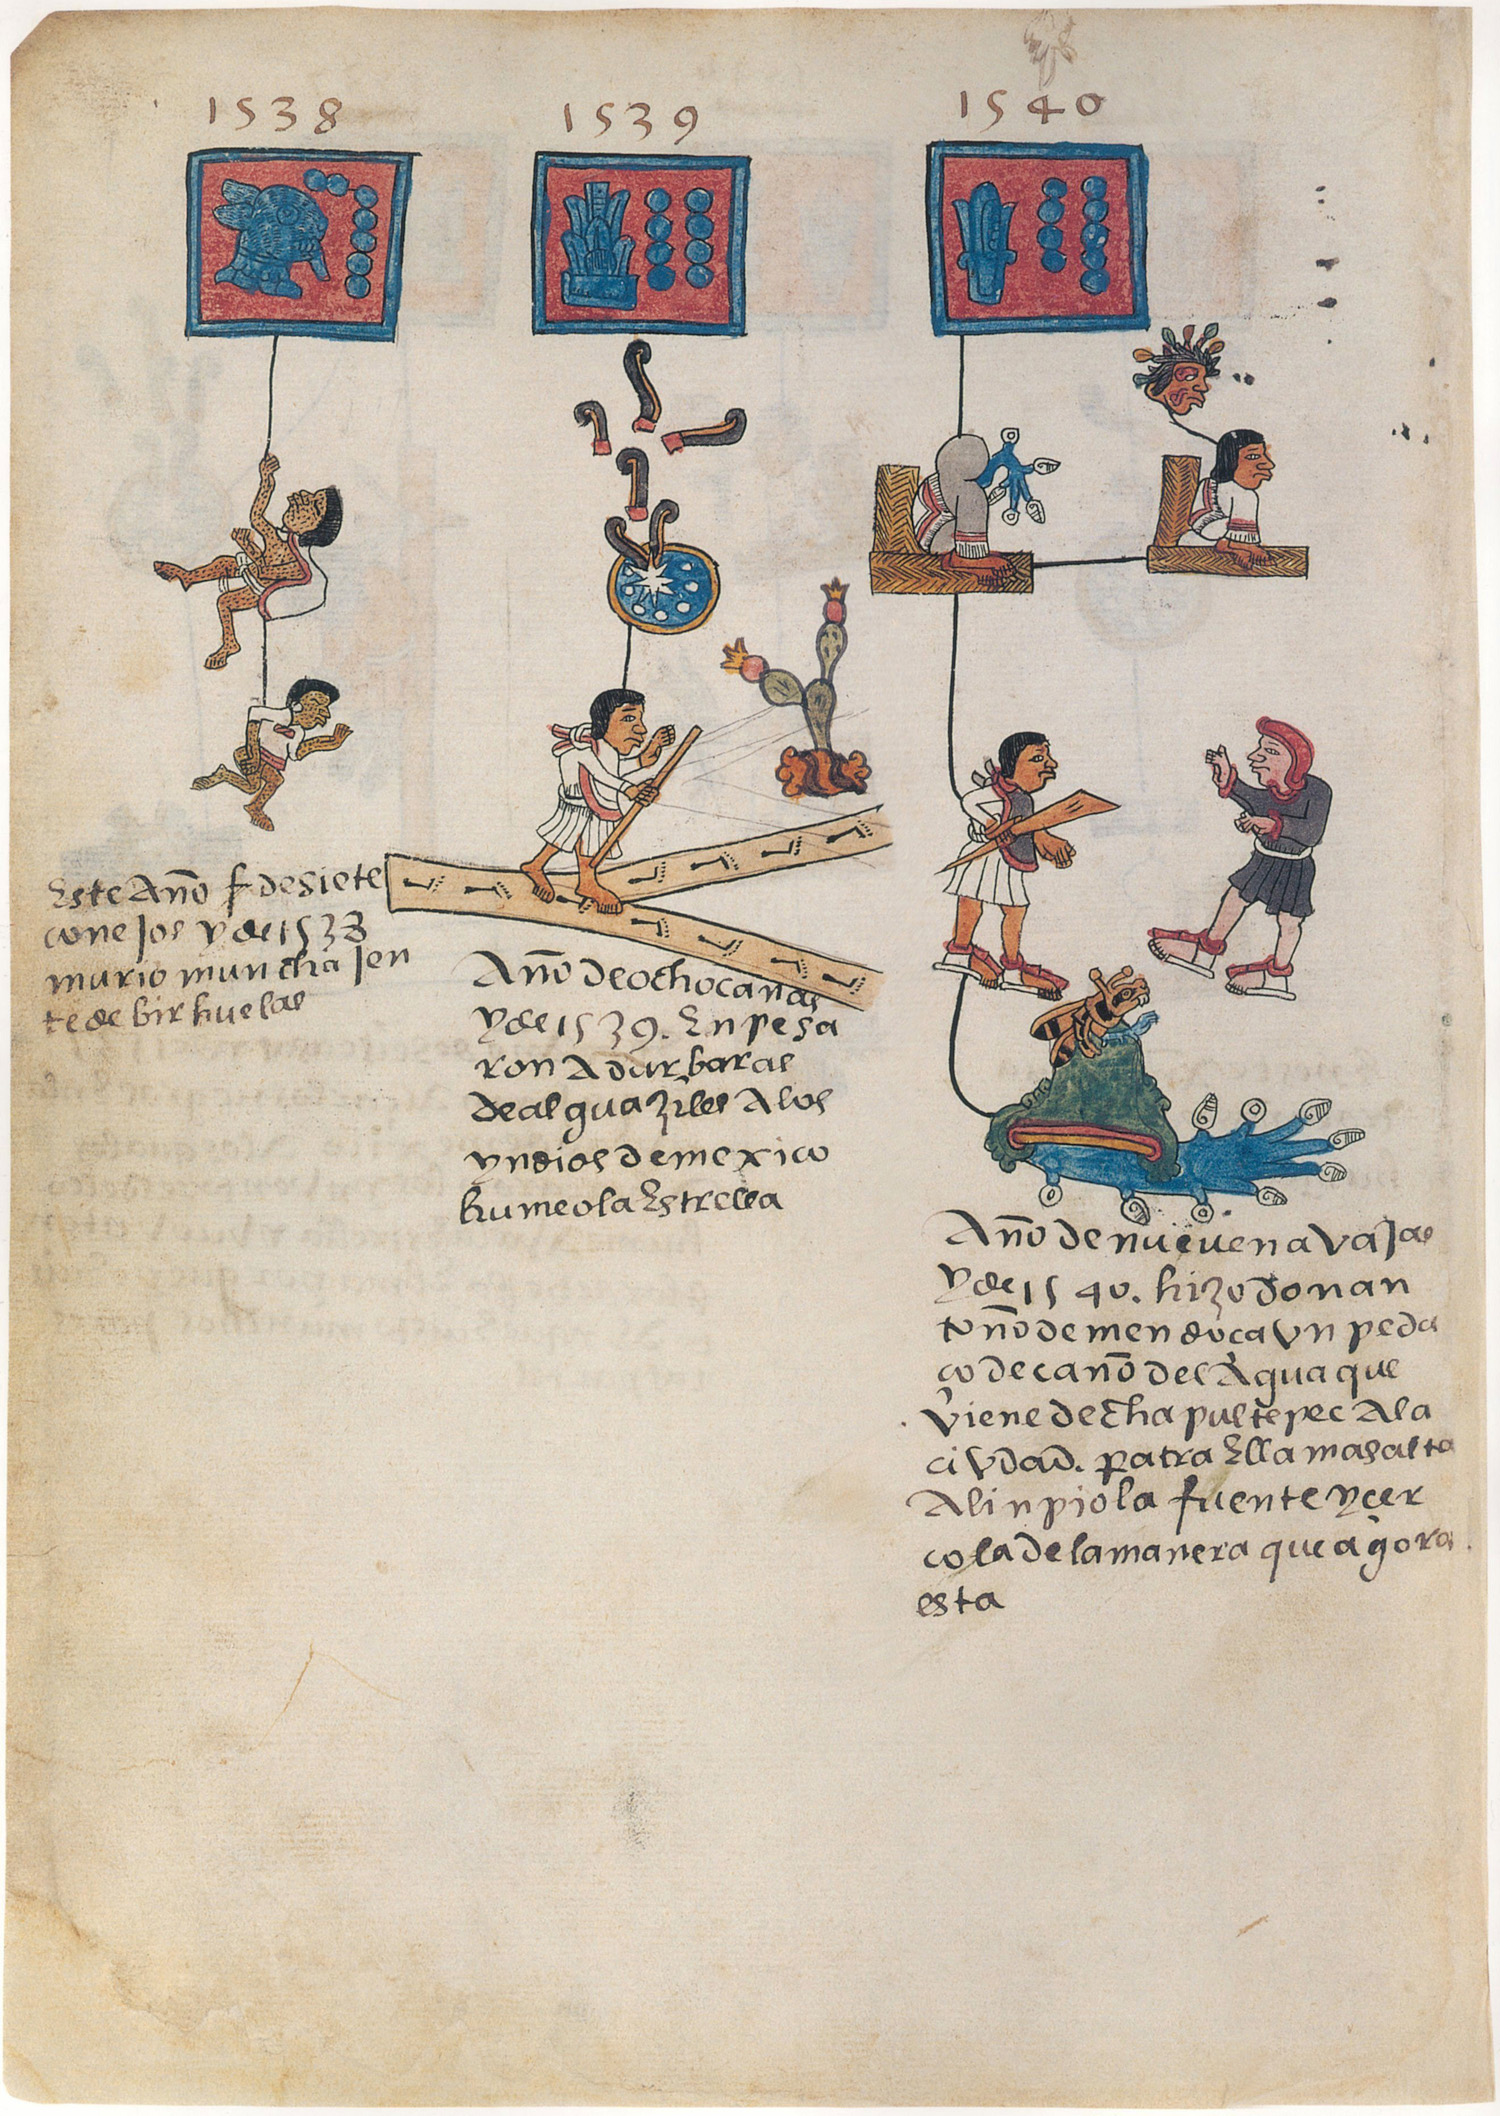 1538
1539
1540
Este Año f desiete
conejos y de 1538
murio muncha jen
te de birhuelas
Año de ocho canas
y de 1539. Enpesa
ron A dar baras
de alguaziles A los
yndios de mexico
humeo la Estrella
Año de nueue navajas
y de 1540. hizo don an
toño de mendoca vn peda
co de caño del Agua que
viene de chapultepec A la
civdad. patra Ella mas alta
Alinpio la fuente y cer
co la de la manera que agora
esta